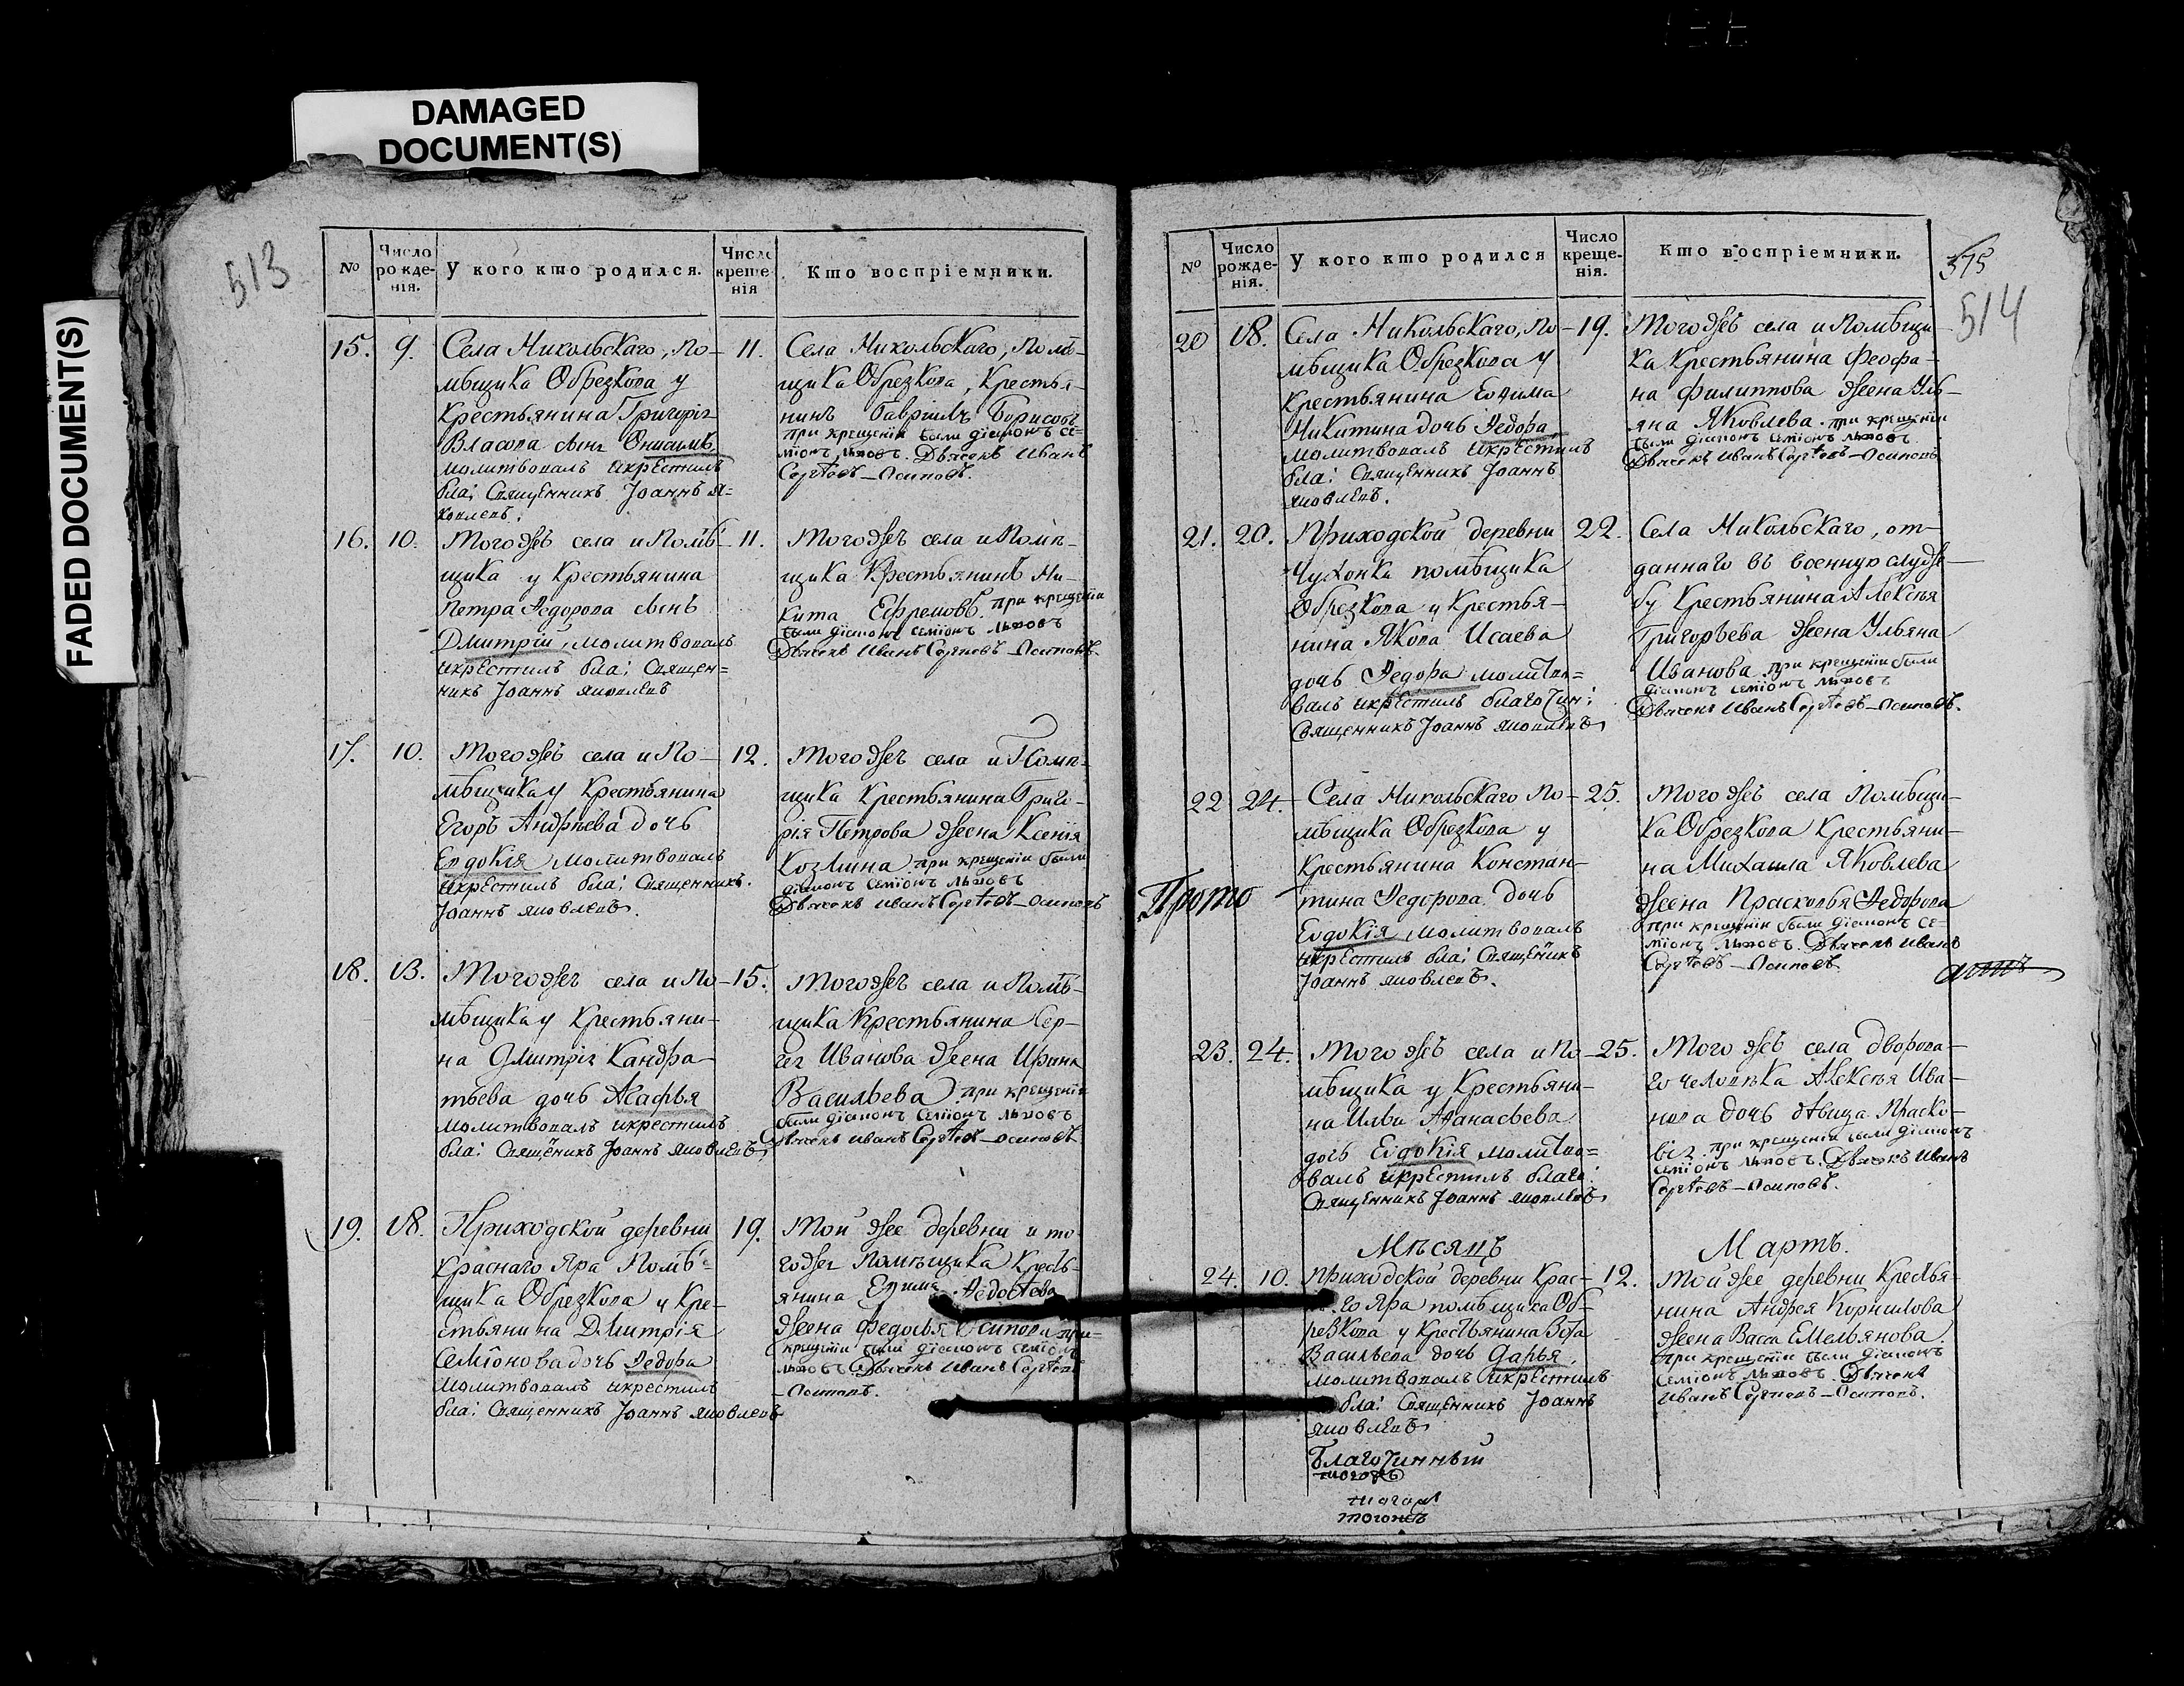 DAMAGED
DOCUMENT(S)
FADED DOCUMENT(S)
513
№
Число рожде-нія.
У кого кто родился.
Число креще-нія
Кто воспріемники.
15.
9.
Села Никольскаго, По-
мѣщика Обрезкова у
Крестьянина Григорія
Власова сынъ Онисимъ
молитвовалъ икрестилъ
бла: Священникъ Іоаннъ Я=
ковлевъ.
11.
Села Никольскаго, Помѣ-
щика Обрезкова, Крестья-
нинъ Гавріилъ Борисовъ
при крещеніи были діаконъ Се=
міонъ Львовъ. Дьячекъ Иванъ
Сергѣевъ—Осиповъ.
16.
10.
Тогожъ села и Помѣ-
щика у Крестьянина
Петра Ѳедорова сынъ
Дмитрій, молитвовалъ
икрестилъ бла: Священ=
никъ Іоаннъ Яковлевъ
11.
Тогожъ села и Помѣ-
щика Крестьянинъ Ни-
кита Ефремовъ. при крещеніи
были діаконъ Семіонъ Львовъ
Дьячекъ Иванъ Сергѣевъ—Осиповъ.
17.
10.
Тогожъ села и По-
мѣщика у Крестьянина
Егора Андрѣева дочь
Евдокія молитвовалъ
икрестилъ бла: Священникъ.
Іоаннъ Яковлевъ.
12.
Тогожъ села и Помѣ-
щика Крестьянина Григо-
рія Петрова жена Ксенія
Козмина при крещеніи были
діаконъ Семіонъ Львовъ
Дьячекъ Иванъ Сергѣевъ—Осиповъ
18.
13.
Тогожъ села и По-
мѣщика у Крестьяни-
на Дмитрія Кандра-
тьева дочь Агафья
молитвовалъ икрестилъ
бла: Священикъ Іоаннъ Яковлевъ
15.
Тогожъ села и Помѣ-
щика Крестьянина Сер-
гея Иванова жена Ирина
Васильева при крещеніи
были діаконъ Семіонъ Львовъ
Дьячекъ Иванъ Сергѣевъ—Осиповъ.
19.
18.
Приходской деревни
Краснаго Яра Помѣ-
щика Обрезкова у Кре-
стьянина Дмитрія
Семіонова дочь Ѳедора
молитвовалъ икрестилъ
бла: Священникъ Іоаннъ Яковлевъ
19.
Той же деревни и то-
гожъ Помѣщика Кресть-
янина Ефима Ѳедотева
жена Федосья Осипова при-
крещеніи были діаконъ Семіонъ
Львовъ. Дьячекъ Иванъ Сергѣевъ
—Осиповъ.
375
514
№
Число рожде-нія.
У кого кто родился
Число креще-нія.
Кто воспріемники.
20
18.
Села Никольскаго, По-
мѣщика Обрезкова у
Крестьянина Ефима
Никитина дочь Ѳедора
молитвовалъ икрестилъ
бла: Священникъ Іоаннъ
Яковлевъ.
19.
Тогожъ села и Помѣщи-
ка Крестьянина Феофа-
на Филиппова жена Уль-
яна Яковлева. при крещеніи
были діаконъ Семіонъ Львовъ
Дьячекъ Иванъ Сергѣевъ—Осиповъ
21.
20.
Приходской деревни
Чухонка помѣщика
Обрезкова у Крестья-
нина Якова Исаева
дочь Ѳедора молитво=
валъ икрестилъ благочин:
Священникъ Іоаннъ Яковлевъ
22.
Села Никольскаго, от-
даннаго въ военную служ-
бу Крестьянина Алексѣя
Григорьева жена Ульяна
Иванова при крещеніи были
діаконъ Семіонъ Львовъ
Дьячекъ Иванъ Сергѣевъ—Осиповъ.
22
24.
Села Никольскаго По-
мѣщика Обрезкова у
Крестьянина Констан-
тина Ѳедорова дочь
Евдокія молитвовалъ
икрестилъ бла: Священикъ
Іоаннъ Яковлевъ.
25.
Тогожъ села Помѣщи-
ка Обрезкова Крестьяни-
на Михаила Яковлева
жена Прасковья Ѳедорова
при крещеніи были діаконъ Се-
міонъ Львовъ. Дьячекъ Иванъ
Сергѣевъ—Осиповъ.
Прото
23.
24.
Тогожъ села и По-
мѣщика у Крестьяни-
на Ильи Афанасьева
дочь Евдокія молитво=
валъ икрестилъ благо:
Священникъ Іоаннъ Яковлевъ
25.
Тогожъ села дворова-
го человѣка Алексѣя Ива-
нова дочь дѣвица Праско-
вія. при крещеніи были діаконъ
Семіонъ Львовъ. Дьячекъ Иванъ
Сергѣевъ—Осиповъ.
Мѣсяцъ Мартъ.
24.
10.
Приходской деревни Крас-
го Яра помѣщика Об-
резкова у Крестьянина
Васильева дочь Дарья,
молитвовалъ икрестилъ
бла: Священникъ Іоаннъ
Яковлевъ
12.
Той же деревни Крестья-
нина Андрея Корнилова
жена Васса Емельянова.
при крещеніи были діаконъ
Семіонъ Львовъ. Дьячекъ
Иванъ Сергѣевъ—Осиповъ.
Благочинный